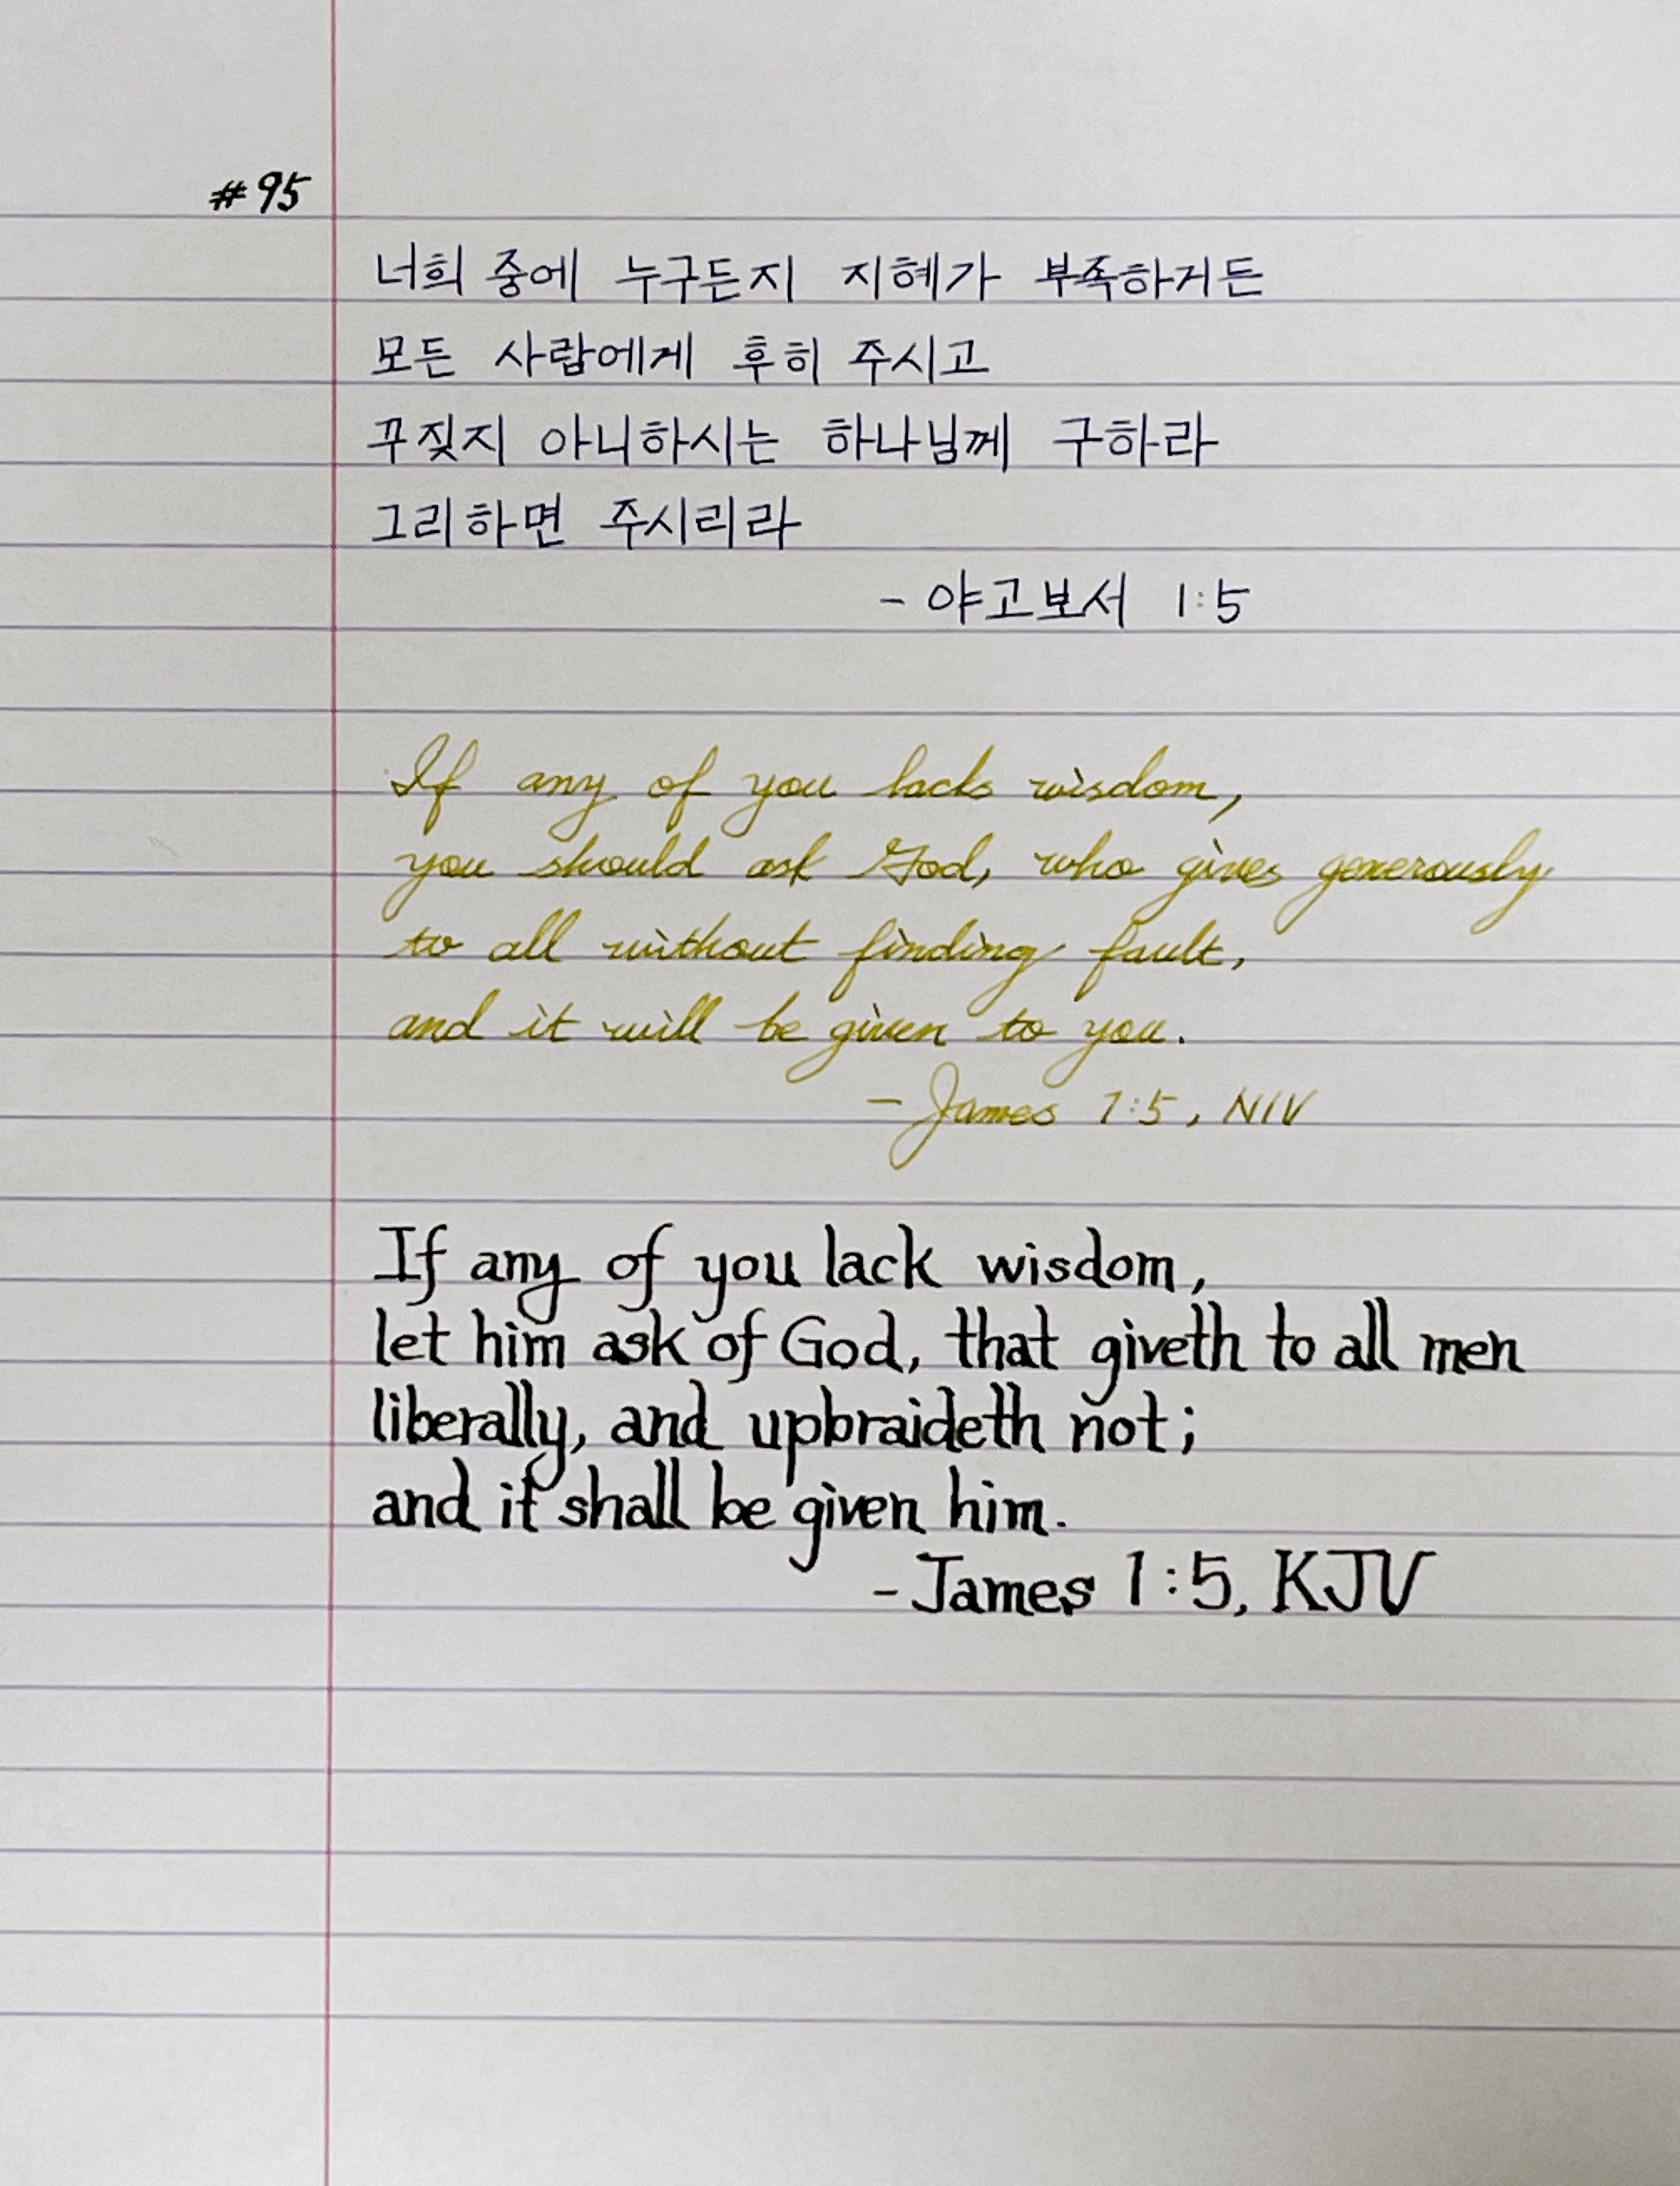 #95
너희 중에 누구든지 지혜가 부족하거든
모든 사람에게 후히 주시고
꾸짖지 아니하시는 하나님께 구하라
그리하면 주시리라
- 야고보서 1:5
If any of you lacks wisdom,
you should ask God, who gives generously
to all without finding fault,
and it will be given to you.
- James 1:5, NIV
If any of you lack wisdom,
let him ask of God, that giveth to all men
liberally, and upbraideth not;
and it shall be given him.
- James 1:5, KJV